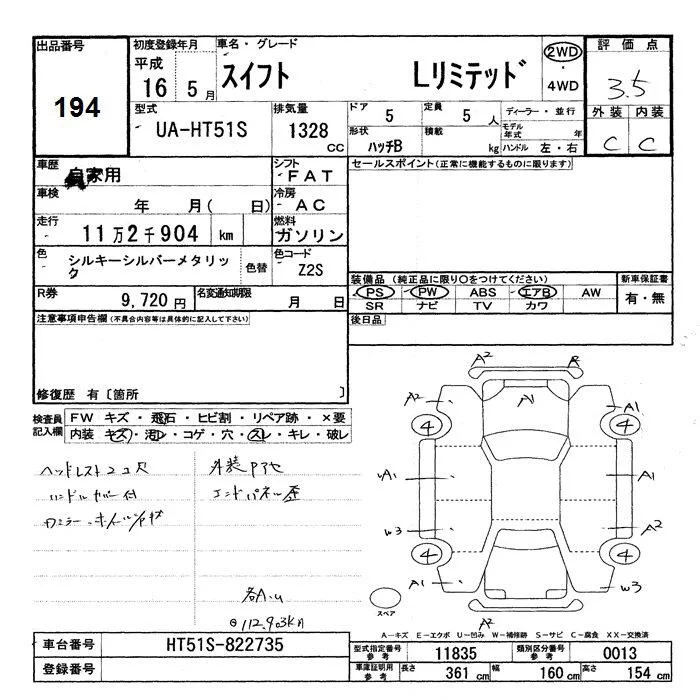 出品番号
194
初度登録年月
平成
16 5月
車名・グレード
スイフト Lリミテッド
2WD
・
4WD
評価点
3.5
外装 内装
C C
型式
UA-HT51S
排気量
1328
CC
ドア
5
定員
5人
ディーラー・並行
形状
ハッチB
積載
kg
モデル年式 年
ハンドル 左・右
車歴
自家用
シフト
FAT
セールスポイント(正常に機能するものに限ります)
車検
年 月( 日)
冷房
AC
走行
11万2千904 km
燃料
ガソリン
色
シルキーシルバーメタリック
色替
色コード
Z2S
装備品(純正品に限り○をつけてください)
新車保証書
PS PW ABS エアB AW
有・無
SR ナビ TV カワ
R券
9,720円
名変通知期限
月 日
後日品
注意事項申告欄(不具合内容等は具体的に記入して下さい)
修復歴 有〔箇所 〕
検査員記入欄
FW キズ・飛石・ヒビ割・リペア跡・×要
内装 キズ・汚レ・コゲ・穴・スレ・キレ・破レ
ヘッドレスト2コ欠
外装Pアセ
ハンドルカバー付
エンドパネル歪
各A.U
112,903Km
A2 R
A2 A1 A1
4 4
A1 A1
W3 A2
4 4
A1 W3
A2
スペア
A-キズ E-エクボ U-凹み W-補修跡 S-サビ C-腐食 XX-交換済
車台番号
HT51S-822735
型式指定番号
参考
11835
類別区分番号
参考
0013
登録番号
車庫証明用
参考
長さ 361 cm
幅 160 cm
高さ 154 cm